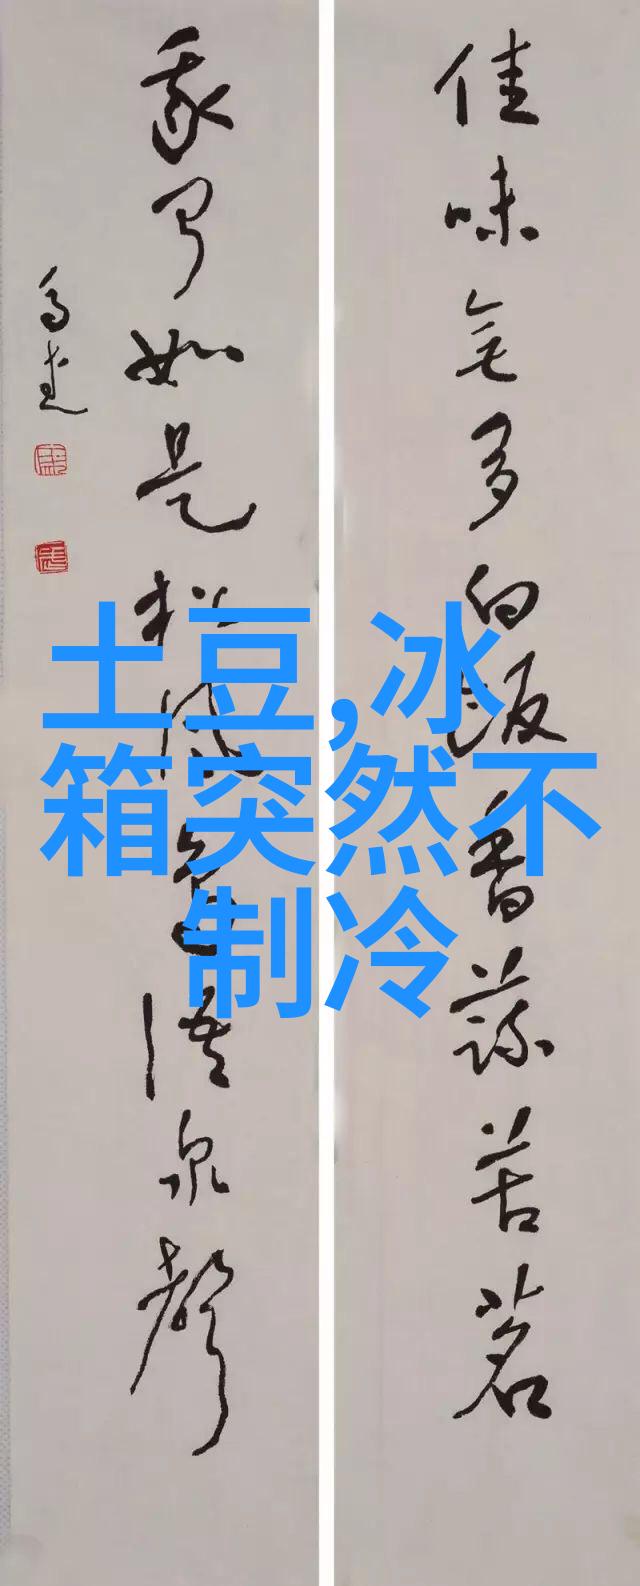 佳味無多白飯香蔬苦茗
我聞如是松風鳥語泉聲
土豆,冰
箱突然不
制冷